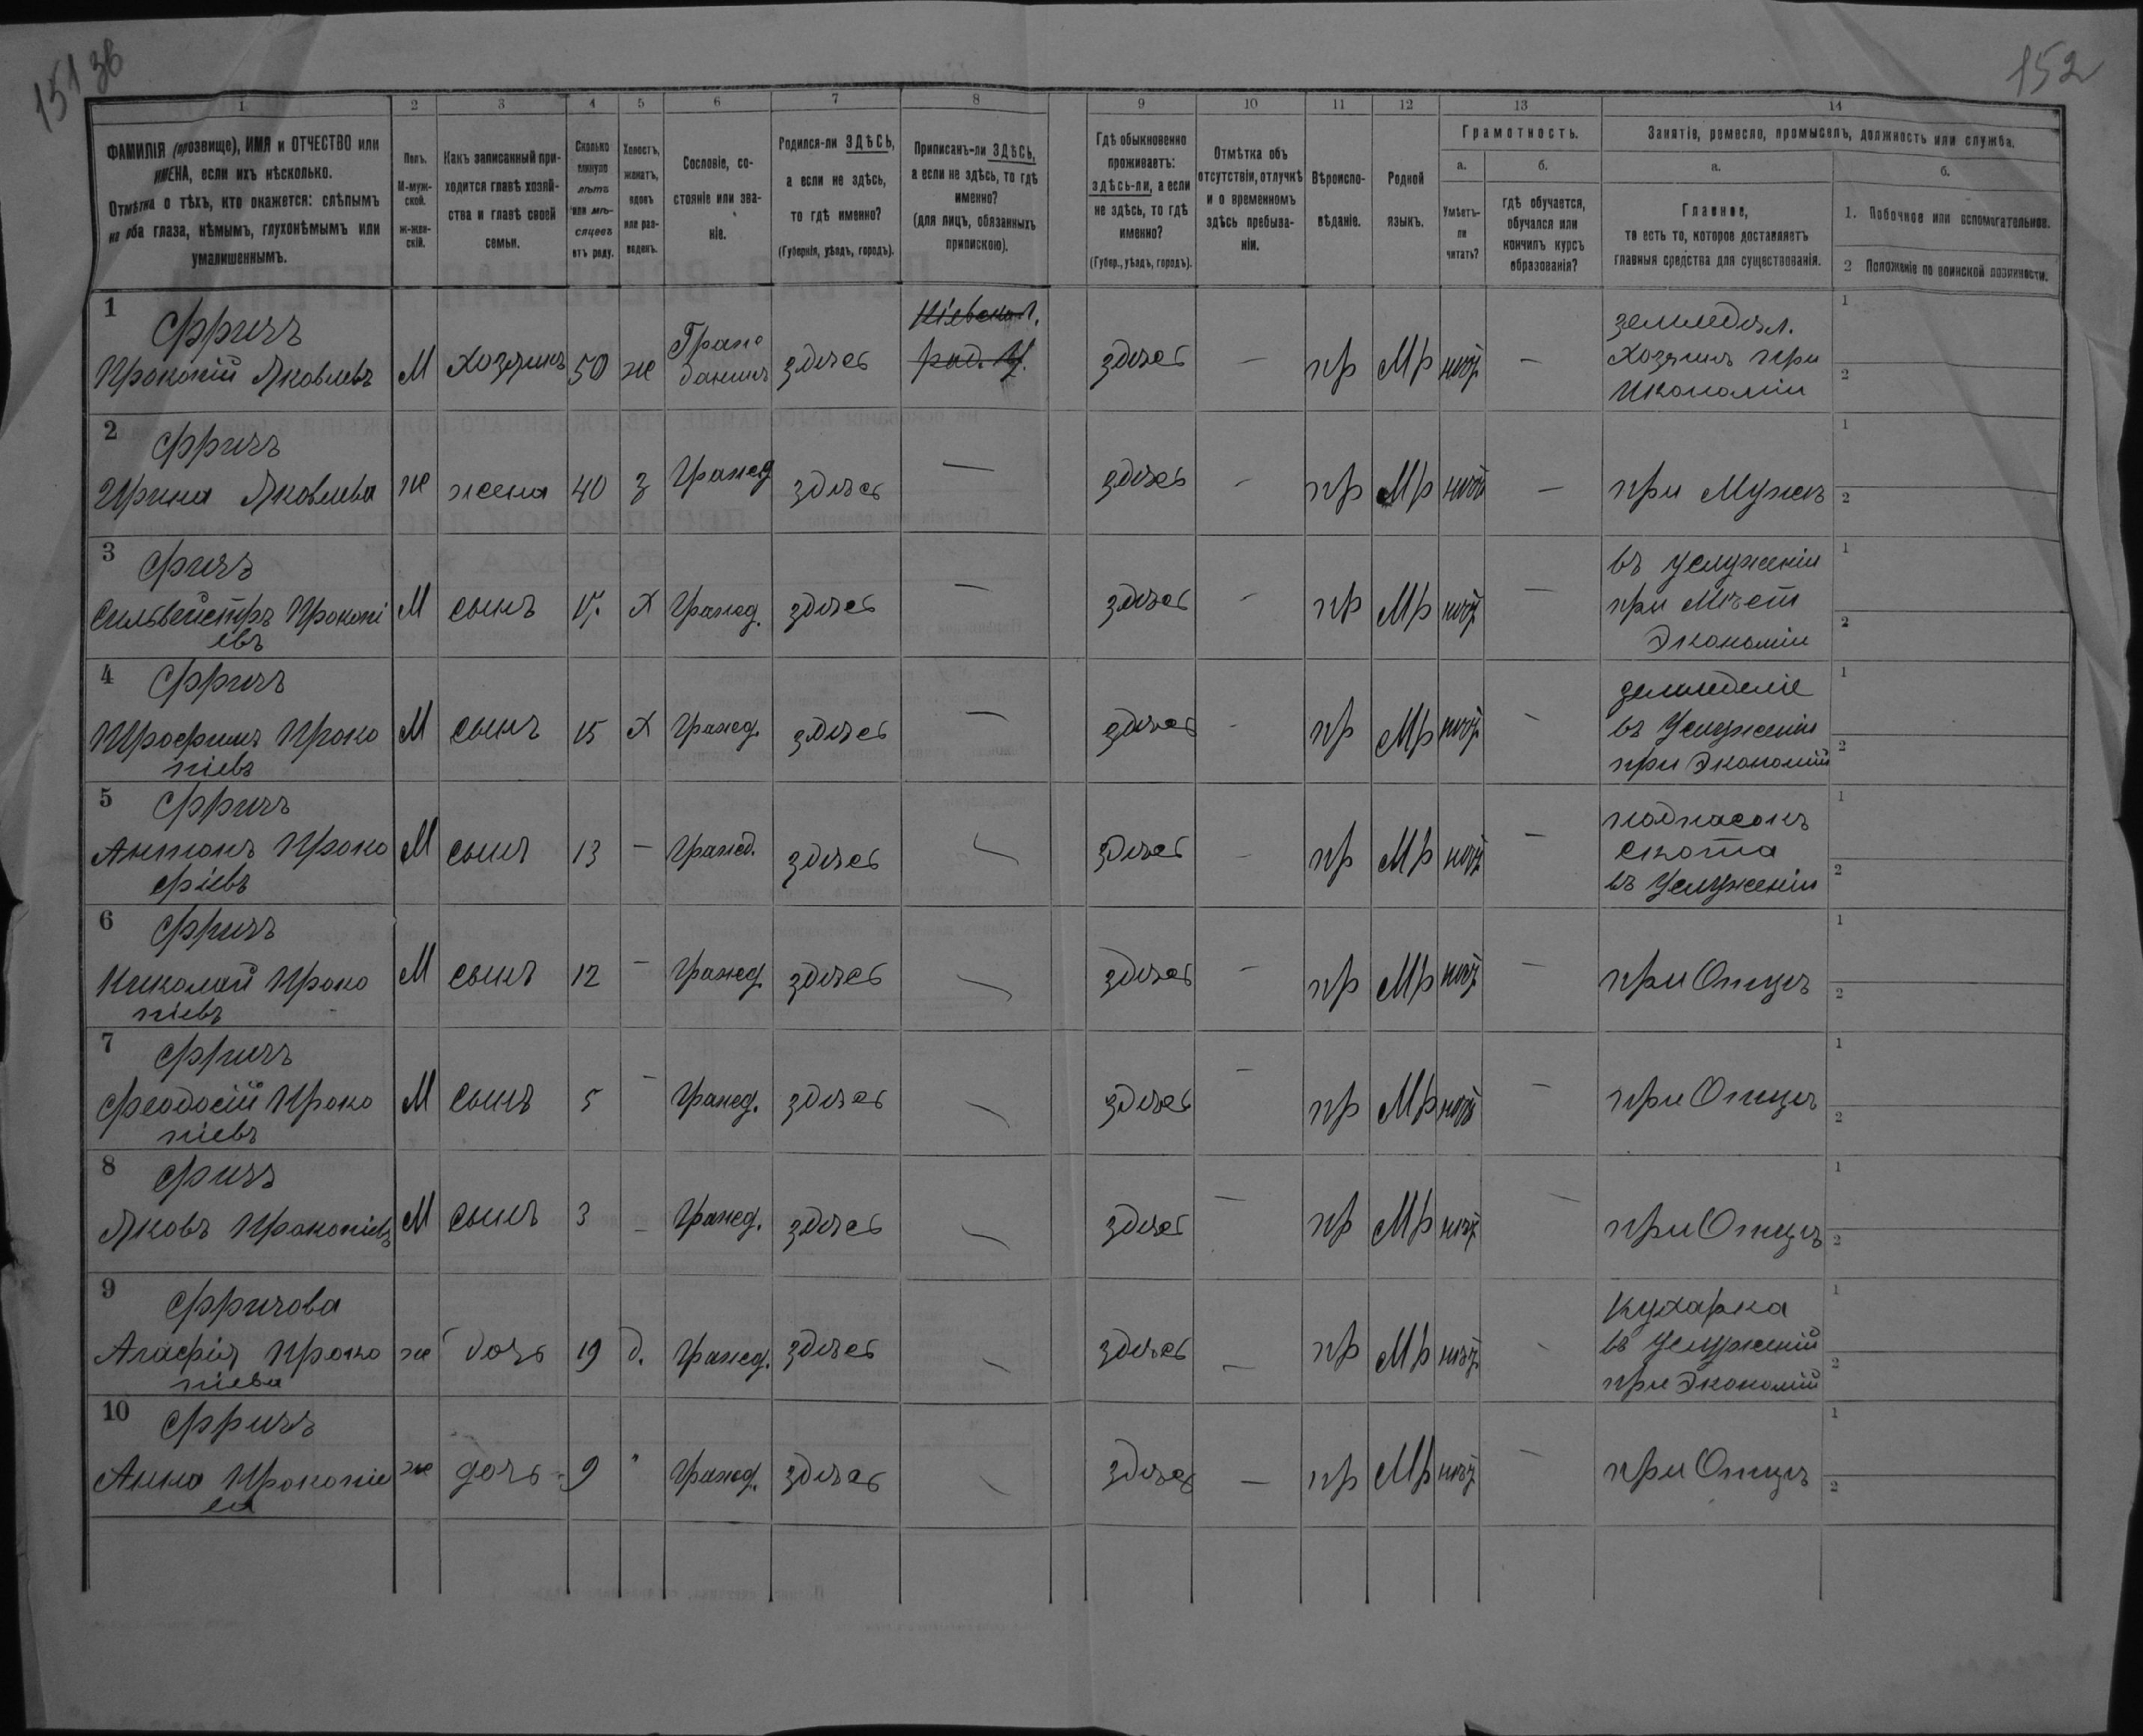 151 зв
152
1
2
3
4
5
6
7
8
9
10
11
12
13
14
ФАМИЛІЯ (прозвище), ИМЯ и ОТЧЕСТВО или
ИМЕНА, если ихъ нѣсколько.
Отмѣтка о тѣхъ, кто окажется: слѣпымъ
на оба глаза, нѣмымъ, глухонѣмымъ или
умалишеннымъ.
Полъ.
М-муж-
ской.
ж-жен-
скій.
Какъ записанный при-
ходится главѣ хозяй-
ства и главѣ своей
семьи.
Сколько
минуло
лѣтъ
или мѣ-
сяцевъ
отъ роду.
Холостъ,
женатъ,
вдовъ
или раз-
веденъ.
Сословіе, со-
стояніе или зва-
ніе.
Родился-ли ЗДѢСЬ,
а если не здѣсь,
то гдѣ именно?
(Губернія, уѣздъ, городъ).
Приписанъ-ли ЗДѢСЬ,
а если не здѣсь, то гдѣ
именно?
(для лицъ, обязанныхъ
припискою).
Гдѣ обыкновенно
проживаетъ:
здѣсь-ли, а если
не здѣсь, то гдѣ
именно?
(Губер., уѣздъ, городъ).
Отмѣтка объ
отсутствіи, отлучкѣ
и о временномъ
здѣсь пребыва-
ніи.
Вѣроиспо-
вѣданіе.
Родной
языкъ.
Грамотность.
а.
Умѣетъ-
ли
читать?
б.
гдѣ обучается,
обучался или
кончилъ курсъ
образованія?
Занятіе, ремесло, промыселъ, должность или служба.
а.
Главное,
то есть то, которое доставляетъ
главныя средства для существованія.
б.
1. Побочное или вспомогательное.
2 Положеніе по воинской повинности.
1 Фричъ
Прокопій Яковлевъ М Хозяинъ 50 ж Граж
данинъ здѣсь здѣсь — пр Мр — земледѣл.
Хозяинъ при
Икономіи 1 2
2 Фричъ
Ирина Яковлева ж жена 40 з Гражд здѣсь — здѣсь - пр Мр — при Мужѣ 1 2
3 Фричъ
Сильвейстръ Прокопі
евъ М сынъ Х Гражд. здѣсь — здѣсь - пр Мр — въ услуженіи
при Мѣст
Экономіи 1 2
4 Фричъ
Трофимъ Проко
піевъ М сынъ 15 Х Гражд. здѣсь — здѣсь - пр Мр - земледеліе
въ Услуженіи
при Экономіи 1 2
5 Фричъ
Антонъ Проко
фіевъ М сынъ 13 — Гражд. здѣсь — здѣсь — пр Мр — подпасокъ
скота
въ Услуженіи 1 2
6 Фричъ
Николай Проко
піевъ М сынъ 12 — Гражд. здѣсь — здѣсь — пр Мр — при Отцѣ 1 2
7 Фричъ
Феодосій Проко
піевъ М сынъ 5 - Гражд. здѣсь — здѣсь — пр Мр — при Отцѣ 1 2
8 Фричъ
Яковъ Прокопіевъ М сынъ 3 - Гражд. здѣсь — здѣсь — пр Мр — при Отцѣ 1 2
9 Фричова
Агафія Проко
піева ж дочь 19 д. Гражд. здѣсь — здѣсь — пр Мр - Кухарка
въ Услуженіи
при Экономіи 1 2
10 Фричъ
Анна Прокопіе
ва ж дочь 9 " Гражд. здѣсь — здѣсь — пр Мр — при Отцѣ 1 2